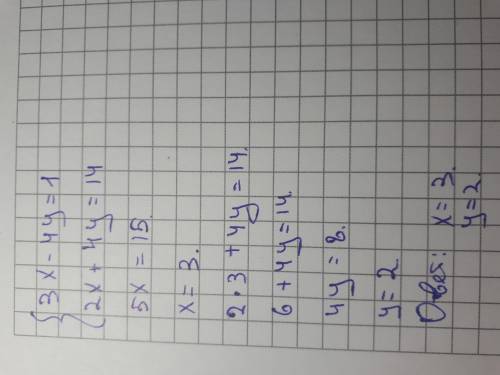 {3x - 4y = 1
2x + 4y = 14
5x = 15.
x = 3.
2 · 3 + 4y = 14.
6 + 4y = 14.
4y = 8.
y = 2.
Ответ: x = 3.
y = 2.